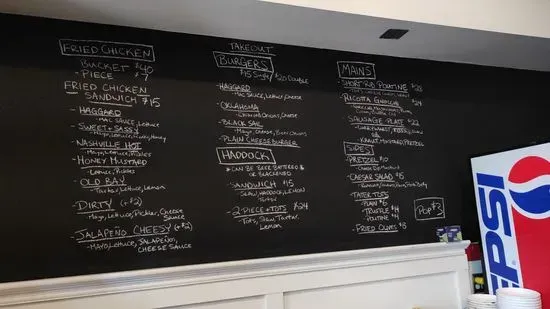 FRIED CHICKEN
BUCKET $40
- PIECE $7
FRIED CHICKEN
SANDWICH $15
- HAGGARD
MAC SAUCE, LETTUCE
- SWEET + SASSY
- NASHVILLE HOT
- HONEY MUSTARD
LETTUCE, PICKLES
- OLD BAY
TARTAR, LETTUCE, LEMON
- DIRTY (+$2)
MAYO, LETTUCE, PICKLES, CHEESE
SAUCE
- JALAPEÑO CHEESY (+$2)
- MAYO, LETTUCE, JALAPEÑO,
CHEESE SAUCE
TAKEOUT
BURGERS
$15 Single $20 Double
- HAGGARD
MAC SAUCE, LETTUCE, CHEESE
- OKLAHOMA
ONIONS, CHEESE
- BLACK SAIL
MAYO, CHEESE,
- PLAIN CHEESEBURGER
HADDOCK
CAN BE BEER BATTERED
OR BLACKENED
- SANDWICH $15
SLAW, LEMON
TARTAR
- 2 PIECE + TOTS $24
TOTS, SLAW, TARTAR,
LEMON
MAINS
- SHORT RIB POUTINE
- RICOTTA GNOCCHI $24
- SAUSAGE PLATE $22
KRAUT, MUSTARD, PRETZEL
SIDES
PRETZEL $10
CAESAR SALAD $15
TATER TOTS
- PLAIN $6
- TRUFFLE
- POUTINE
- FRIED OLIVES
POP $3
PEPSI